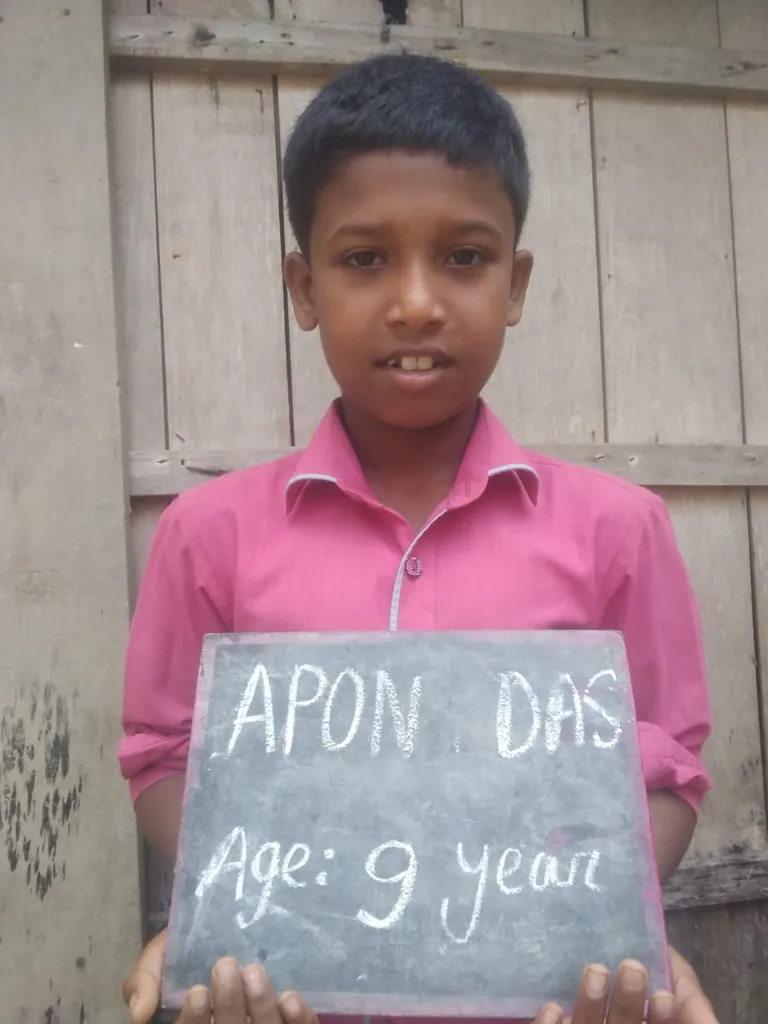 APON DAS
Age: 9 year